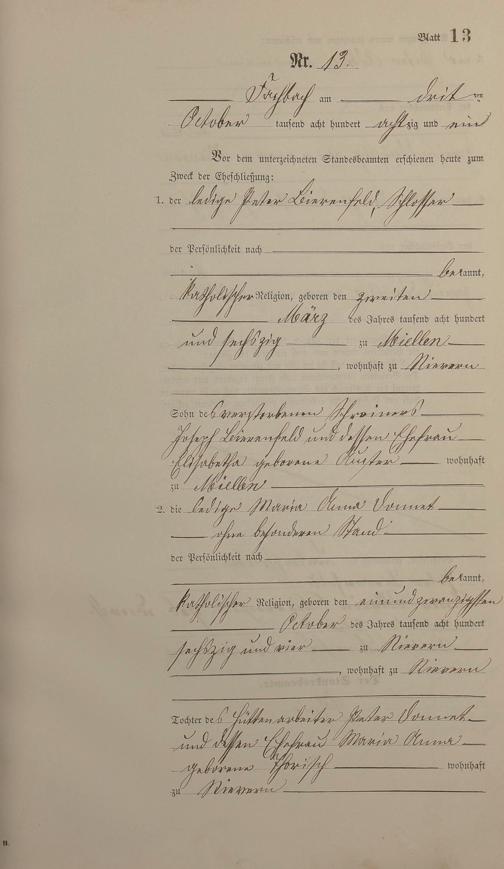 Blatt 13
Nr. 13.
Fachbach am drit ten
October tausend acht hundert achtzig und ein
Vor dem unterzeichneten Standesbeamten erschienen heute zum
Zweck der Eheschließung:
1. der ledige Peter Bierenfeld, Schlosser
der Persönlichkeit nach
bekannt,
katholischer Religion, geboren den zweiten
März des Jahres tausend acht hundert
und sechszig zu Miellen
, wohnhaft zu Nievern
Sohn des verstorbenen Schreiners
Joseph Bierenfeld und dessen Ehefrau
Elisabetha geborene wohnhaft
zu Miellen
2. die ledige Maria Anna Donnet
ohne besonderen Stand
der Persönlichkeit nach
bekannt,
katholischer Religion, geboren den einundzwanzigsten
October des Jahres tausend acht hundert
sechszig und vier zu Nievern
, wohnhaft zu Nievern
Tochter des Hüttenarbeiter Peter Donnet
und dessen Ehefrau Maria Anna
geborene wohnhaft
zu Nievern
II.